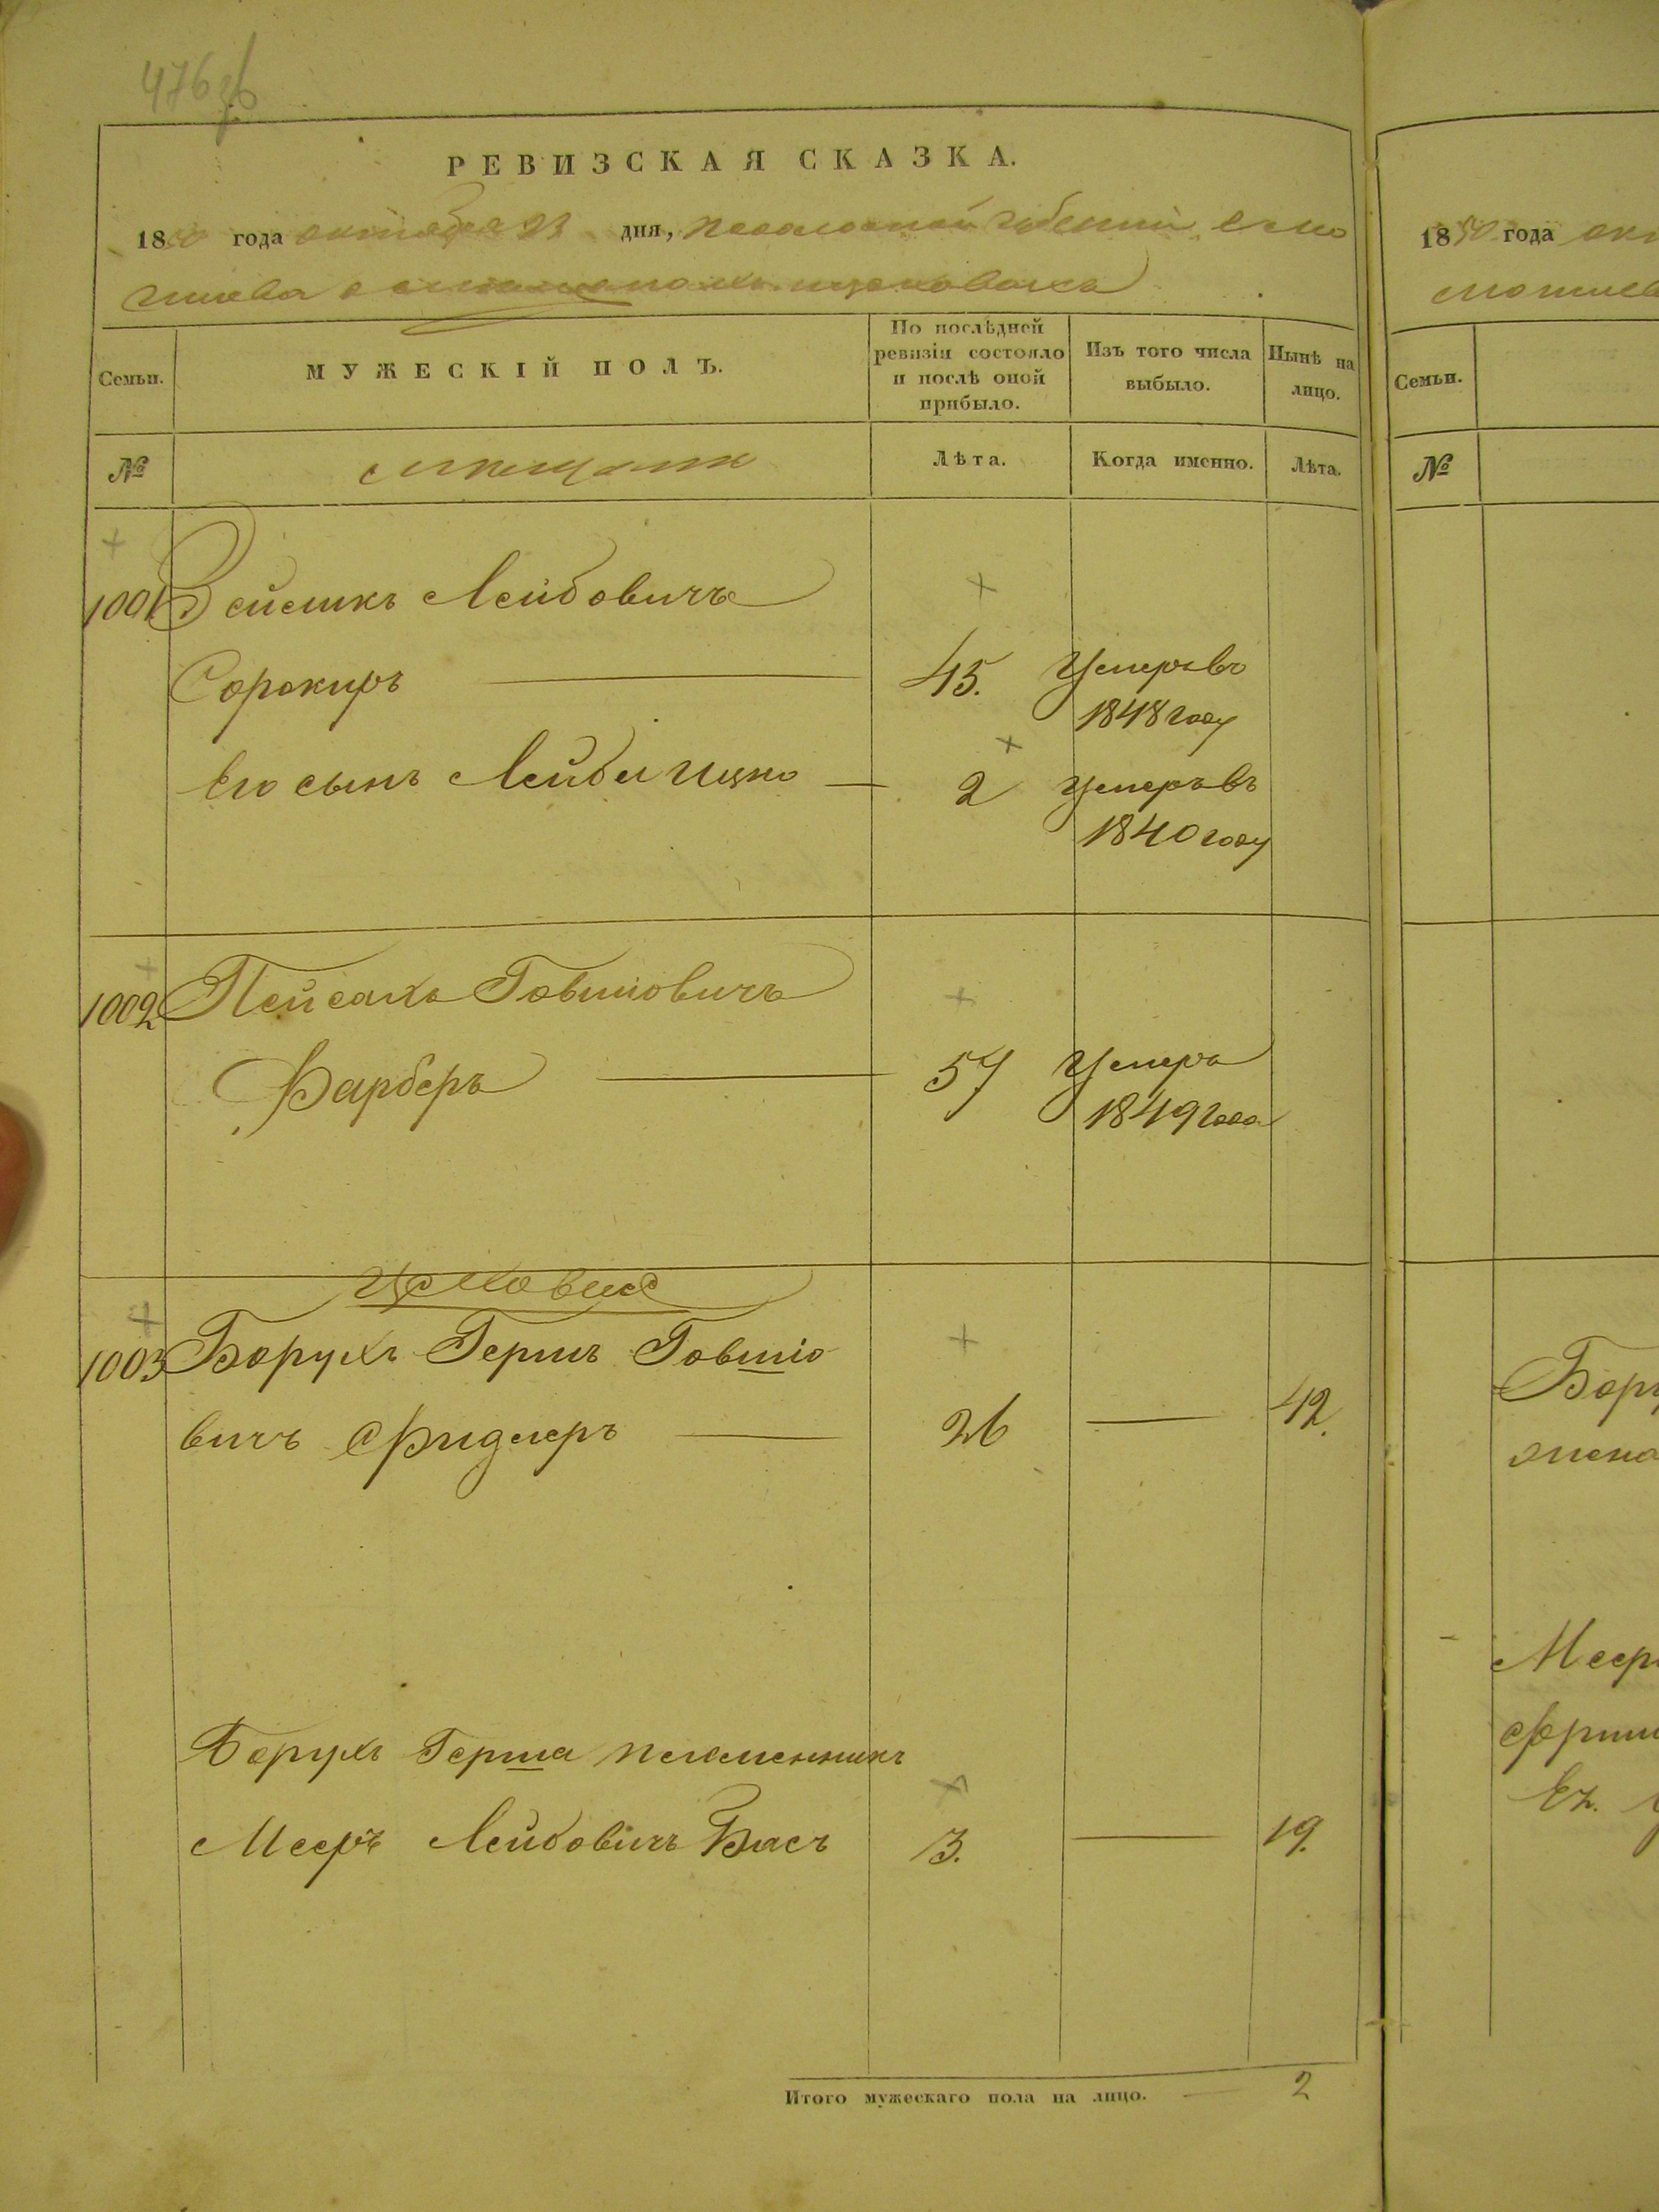 476 об
РЕВИЗСКАЯ СКАЗКА.
1850 года октября 23 дня, Подольской губернии города Мо
гилева о мещанахъ цеховыхъ
Семьи.
МУЖЕСКІЙ ПОЛЪ.
По послѣдней ревизіи состояло и послѣ оной прибыло.
Изъ того числа выбыло.
Нынѣ на лицо.
№
мещане
Лѣта.
Когда именно.
Лѣта.
1001 Зейликъ Лейбовичъ
Сорокиръ 45. Умеръ въ
1848 году
Его сынъ Лейба Ицко 2 умеръ въ
1840 году
1002 Пейсахъ Говшіовичъ
Фарберъ 57 Умеръ
1849 года
Цеховые
1003 Борухъ Гершъ Говшіо
вичъ Фидлеръ 26 — 42.
Борухъ Герша племенникъ
Мееръ Лейбовичъ Басъ 3. — 19.
Итого мужескаго пола на лицо. 2
1850 года окт
Семьи.
№
Бору
жена
Меер